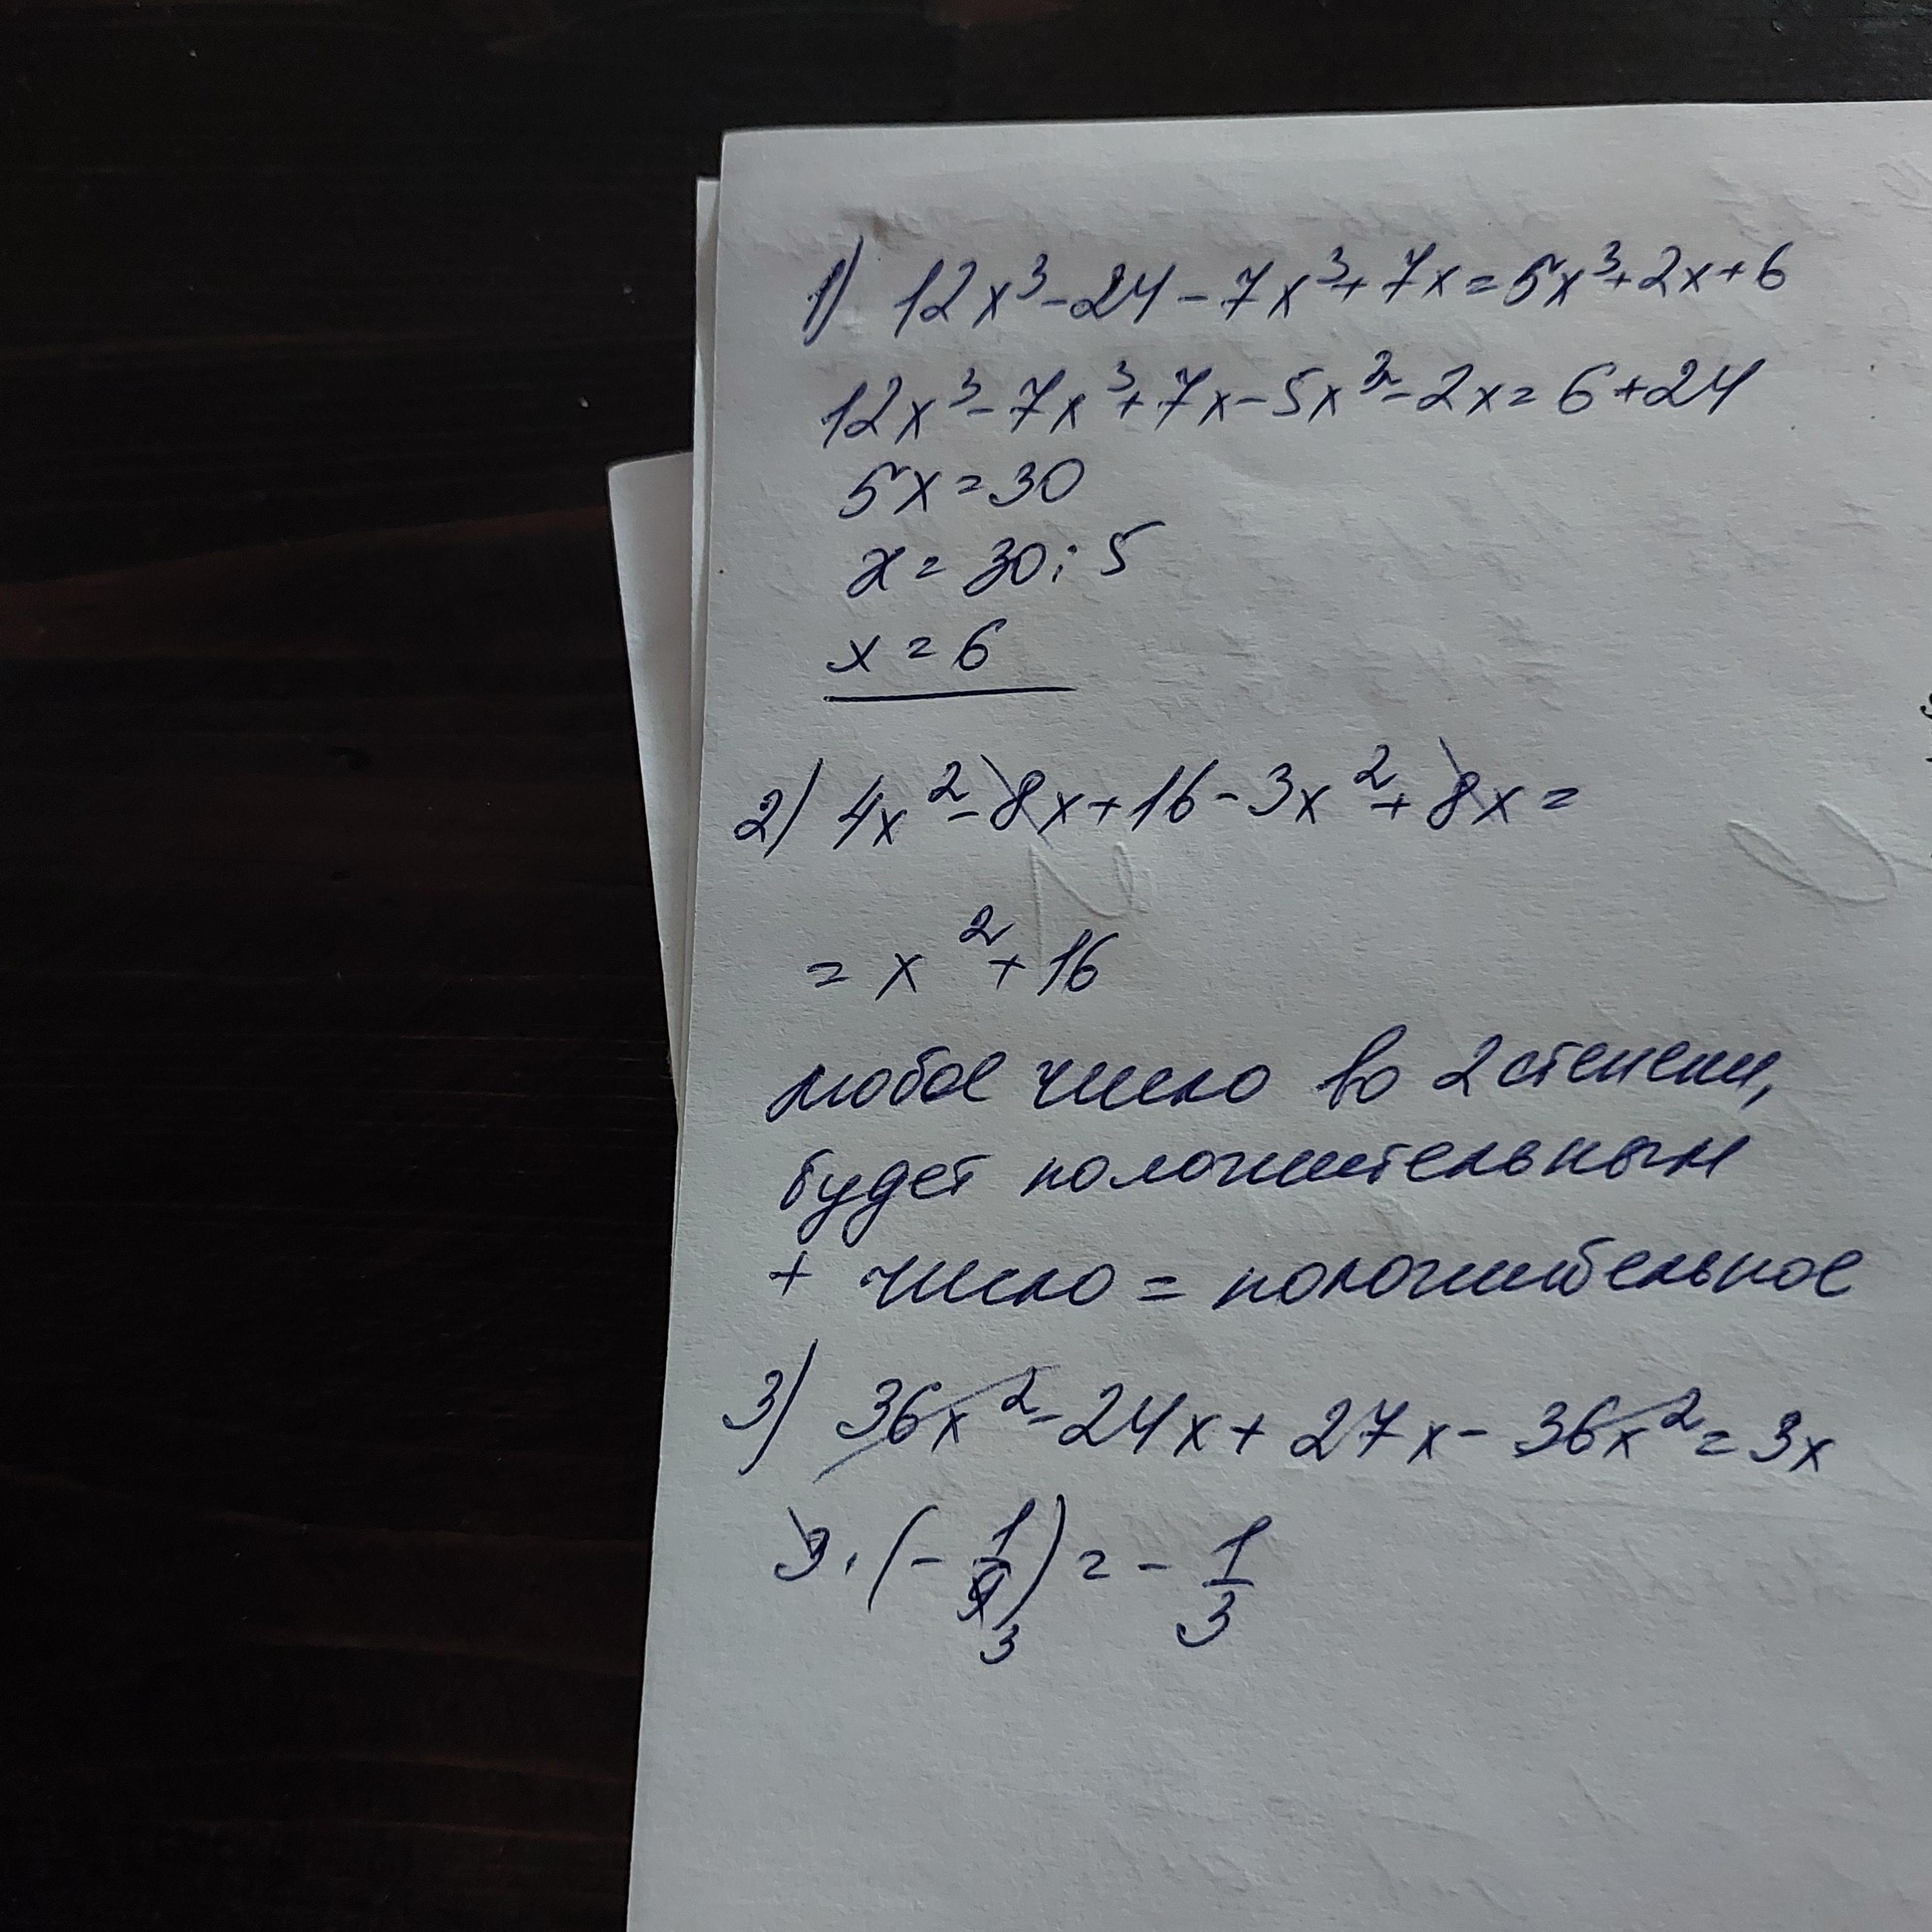 1) 12x³-24-7x³+7x=5x³+2x+6
12x³-7x³+7x-5x³-2x=6+24
5x=30
x=30:5
x=6
2) 4x²-8x+16-3x²+8x=
=x²+16
любое число во 2 степени,
будет положительным
+ число = положительное
3) 36x²-24x+27x-36x²=3x
3·(-1/9)=-1/3
3